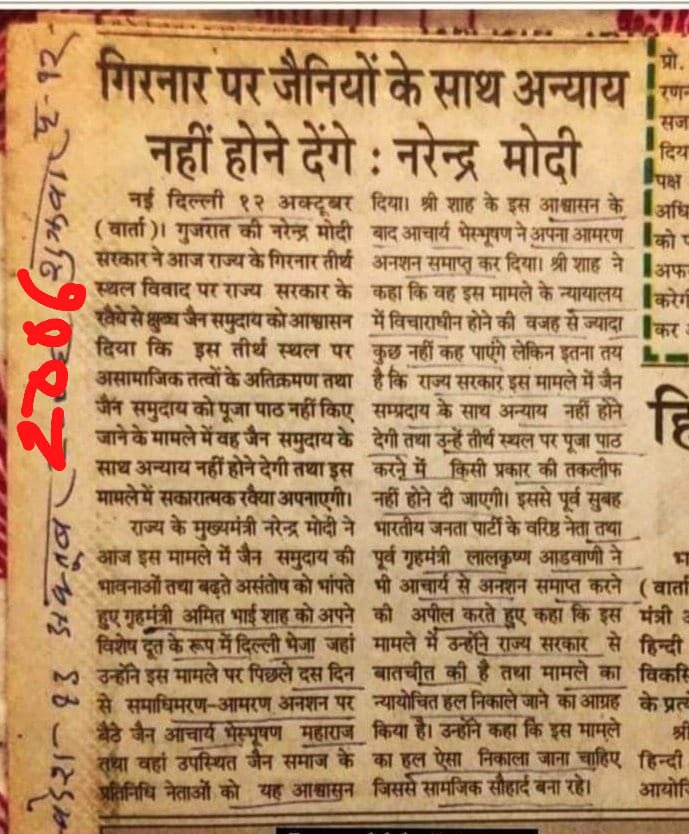 गिरनार पर जैनियों के साथ अन्याय
नहीं होने देंगे : नरेन्द्र मोदी
नई दिल्ली १२ अक्टूबर
(वार्ता)। गुजरात की नरेन्द्र मोदी
सरकार ने आज राज्य के गिरनार तीर्थ
स्थल विवाद पर राज्य सरकार के
रवैये से क्षुब्ध जैन समुदाय को आश्वासन
दिया कि इस तीर्थ स्थल पर
असामाजिक तत्वों के अतिक्रमण तथा
जैन समुदाय को पूजा पाठ नहीं किए
जाने के मामले में वह जैन समुदाय के
साथ अन्याय नहीं होने देगी तथा इस
मामले में सकारात्मक रवैया अपनाएगी।
राज्य के मुख्यमंत्री नरेन्द्र मोदी ने
आज इस मामले में जैन समुदाय की
भावनाओं तथा बढ़ते असंतोष को भांपते
हुए गृहमंत्री अमित भाई शाह को अपने
विशेष दूत के रूप में दिल्ली भेजा जहां
उन्होंने इस मामले पर पिछले दस दिन
से समाधिमरण-आमरण अनशन पर
बैठे जैन आचार्य भेस्भूषण महाराज
तथा वहां उपस्थित जैन समाज के
प्रतिनिधि नेताओं को यह आश्वासन
दिया। श्री शाह के इस आश्वासन के
बाद आचार्य भेस्भूषण ने अपना आमरण
अनशन समाप्त कर दिया। श्री शाह ने
कहा कि वह इस मामले के न्यायालय
में विचाराधीन होने की वजह से ज्यादा
कुछ नहीं कह पाएंगे लेकिन इतना तय
है कि राज्य सरकार इस मामले में जैन
सम्प्रदाय के साथ अन्याय नहीं होने
देगी तथा उन्हें तीर्थ स्थल पर पूजा पाठ
करने में किसी प्रकार की तकलीफ
नहीं होने दी जाएगी। इससे पूर्व सुबह
भारतीय जनता पार्टी के वरिष्ठ नेता तथा
पूर्व गृहमंत्री लालकृष्ण आडवाणी ने
भी आचार्य से अनशन समाप्त करने
की अपील करते हुए कहा कि इस
मामले में उन्होंने राज्य सरकार से
बातचीत की है तथा मामले का
न्यायोचित हल निकाले जाने का आग्रह
किया है। उन्होंने कहा कि इस मामले
का हल ऐसा निकाला जाना चाहिए
जिससे सामजिक सौहार्द बना रहे।
१३ अक्तूबर 2006 शुक्रवार पृ-१२
प्रो.
दिया
पक्ष
को
कर
हि
(वार्ता
मंत्री
हिन्दी
के
श्री
हिन्दी